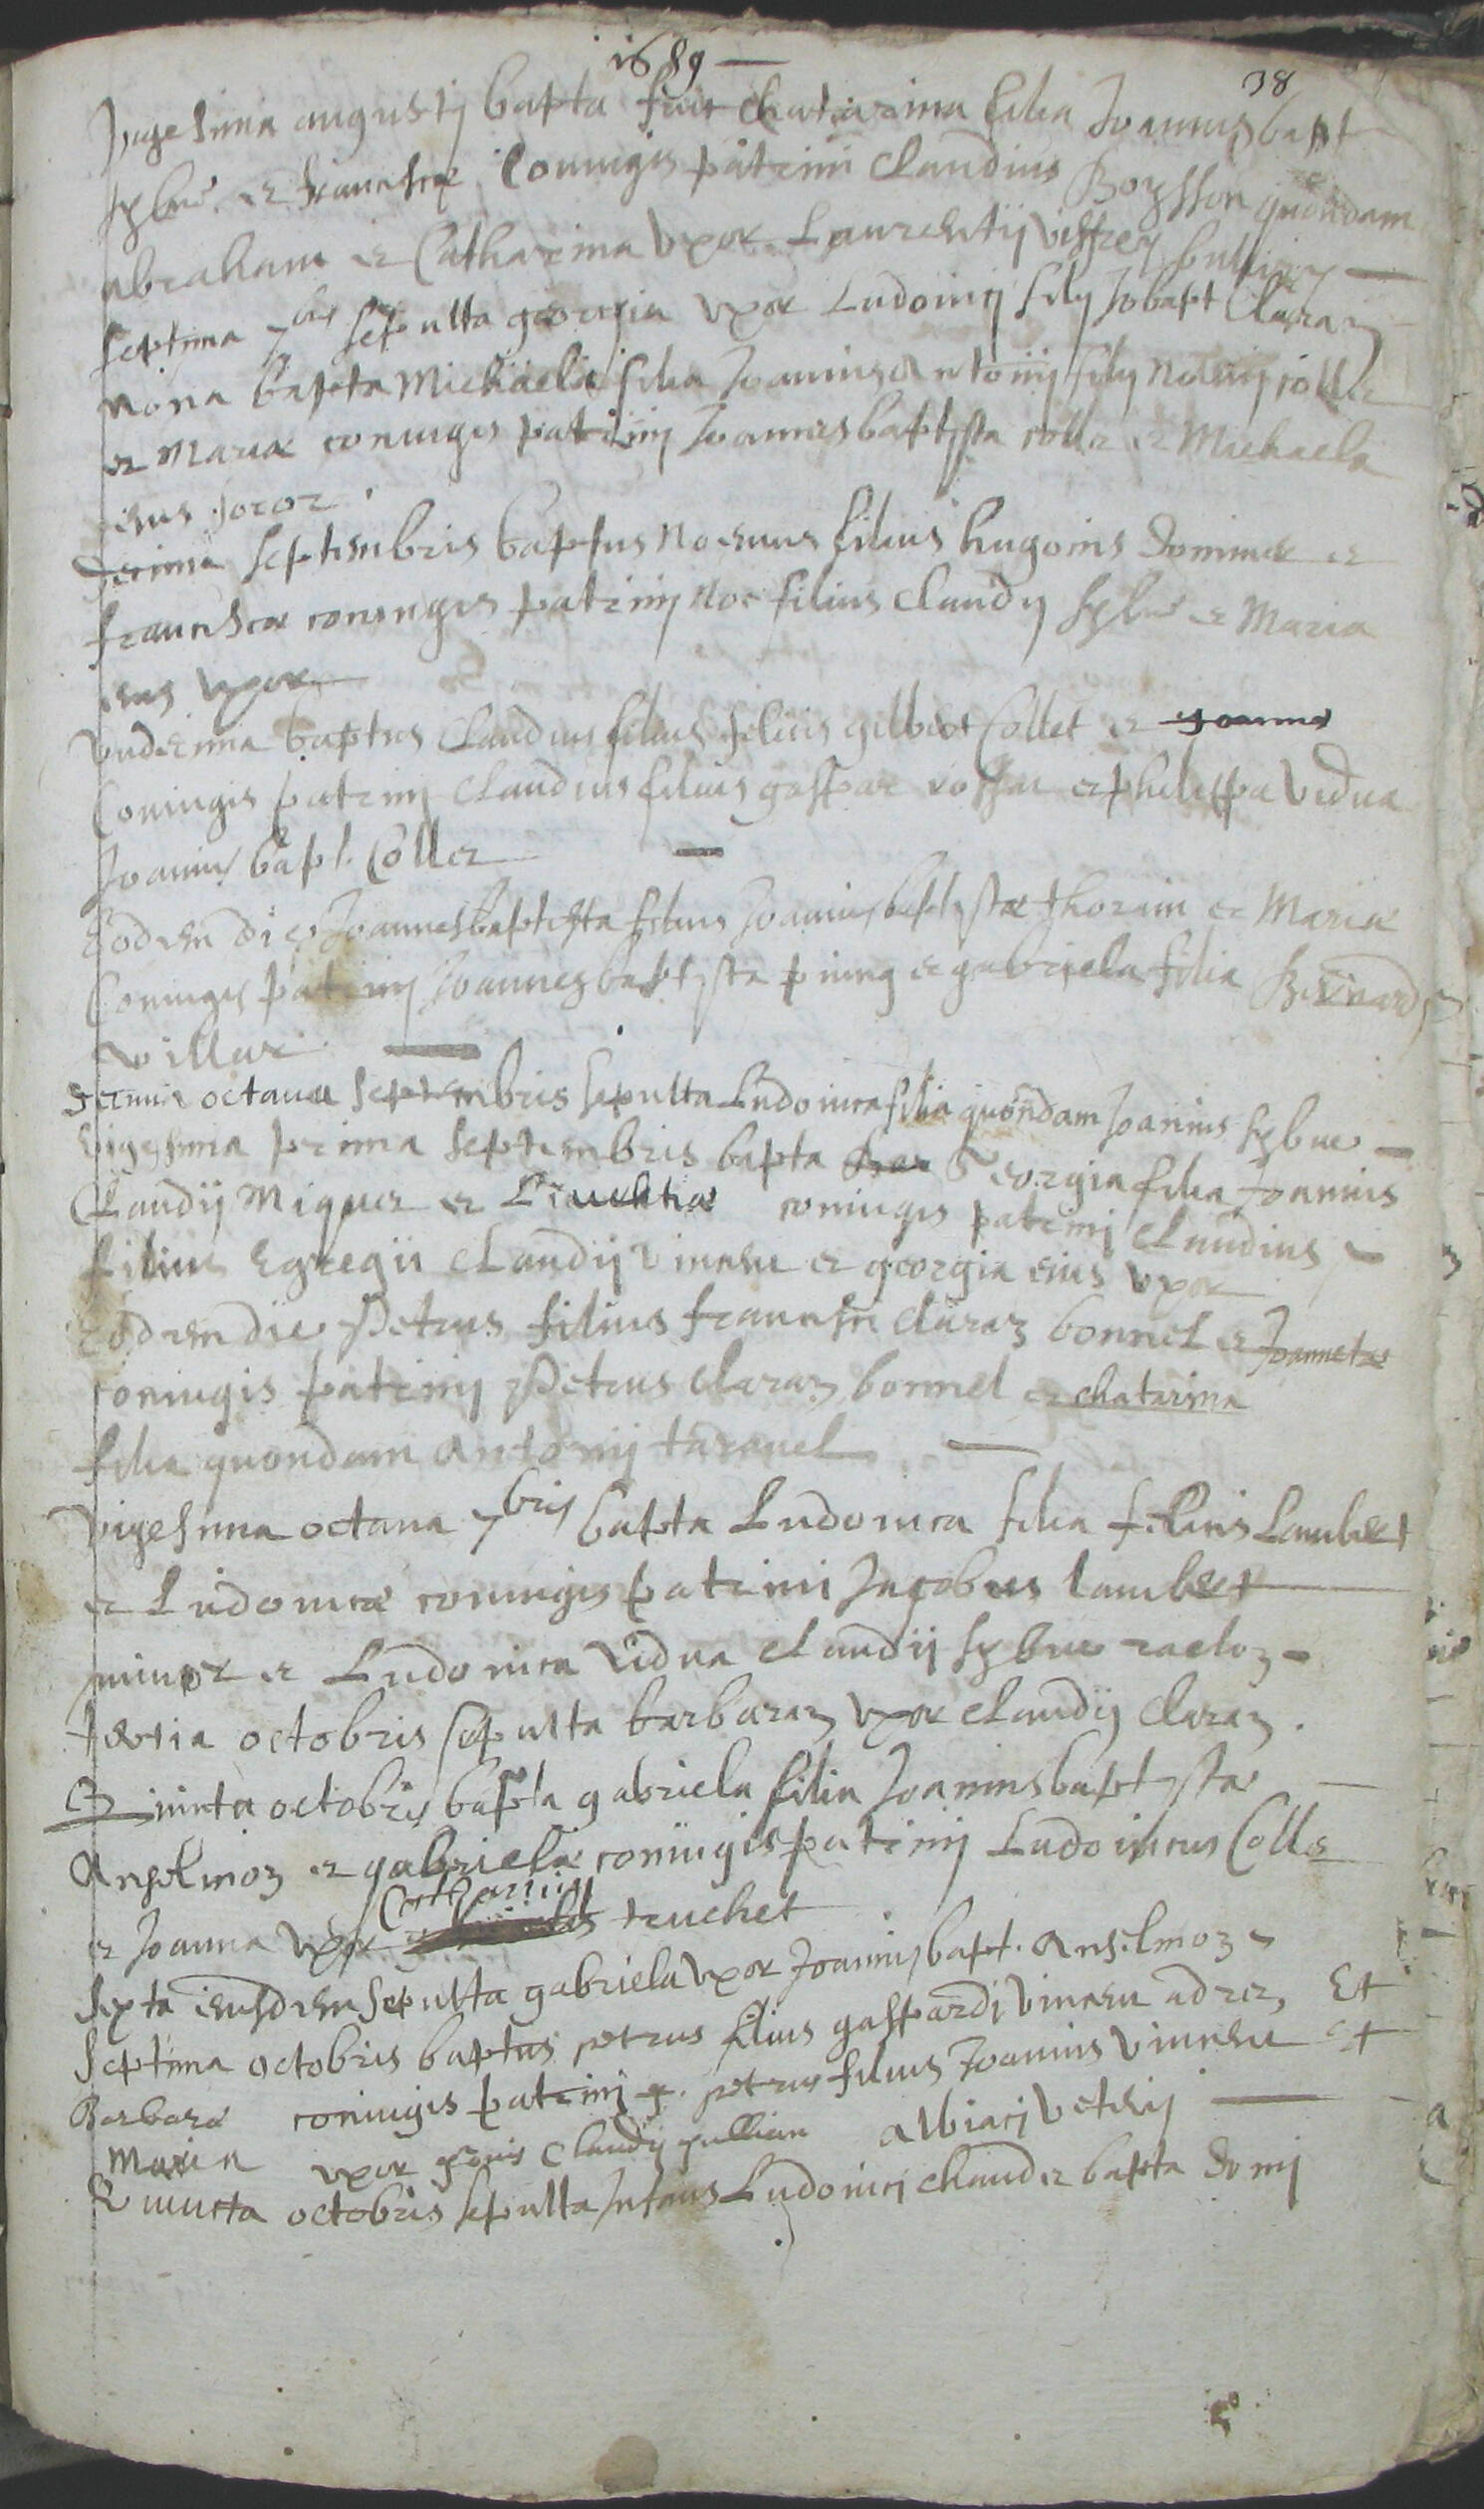 1689 —
38
Vigesima augustij bapta fuit Chatarina filia Joannisbapt
Sylve et franciscæ Coniugis patrini Claudius Boysson quondam
abraham et Catharina Vxor Laurentij
septima 7bris sepulta georgia Vxor Ludovicj filij Jobapt Claraz
Nona bapta Michaela filia Joannis Antonij filij Noelij collet
et Mariæ coniugis patrinj Joannesbaptysta collet et Michaela
eius soror
decima septembris baptus Noemus filius hugonis Dominet et
franciscæ coniugis patrinj Noe filius Claudij Sylve et Maria
eius Vxor
Vndecima baptus Claudius filius felicis gilbert Collet et Joannæ
Coniugis patrinj Claudius filius gaspar et philippa Vidua
Joannis bapt. Collet
Eodem die Joannesbaptista filius Joannisbaptystæ thorain et Mariæ
Coniugis patrinj Joannesbaptysta et gabriela filia Bernardj
Villar
decima octava septembris sepulta Ludovica filia quondam Joannis Sylve —
Vigesima prima septembris bapta Georgia filia Joannis
Claudij Miquet et coniugis patrinj Claudius
filius Egregii Claudij Vincen et georgia eius Vxor
Eodem die Petrus filius francisci Claraz bonnel et Joannetæ
coniugis patrinj Petrus Claraz bonnel et chatarina
filia quondam Antonij taravel —
Vigesima octava 7bris bapta Ludovica filia felicis Lambert
et Ludovicæ coniugis patrini Jacobus lambert
minor et Ludovica Vidua Claudij Sylve
tertia octobris sepulta barbaraz Vxor Claudij Claraz.
Quinta octobris bapta gabriela filia Joannisbaptystæ
Anselmoz et gabrielæ coniugis patrinj Ludovicus Colle
et Joanna Vxor Catharin truchet
Sexta eiusdem sepulta gabriela Vxor Joannisbapt. Anselmoz
Septima octobris baptus petrus filius gaspardi Vincen Et
Barbaræ coniugis patrinj petrus filius Joannis Vincen Et
Maria vxor Claudij albiacj Veterij —
Quinta octobris sepulta Infans Ludovicj bapta Domj